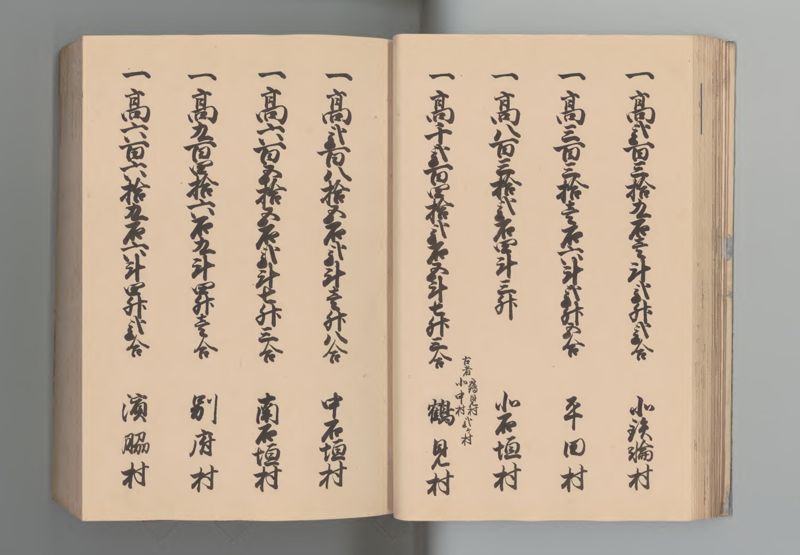 一 高弐百三拾五石壱斗弐升弐合 北鉄輪村
一 高三百三拾壱石六斗弐升五合 平田村
一 高八百三拾弐石四斗三升 北石垣村
一 高千弐百四拾弐石五斗七升三合 鶴見村
古者 鶴見村 弐ヶ村
北中村
一 高弐百八拾五石弐斗壱升八合 中石垣村
一 高六百五拾五石弐斗七升三合 南石垣村
一 高五百四拾六石五斗四升壱合 別府村
一 高六百六拾五石六斗四升弐合 濱脇村